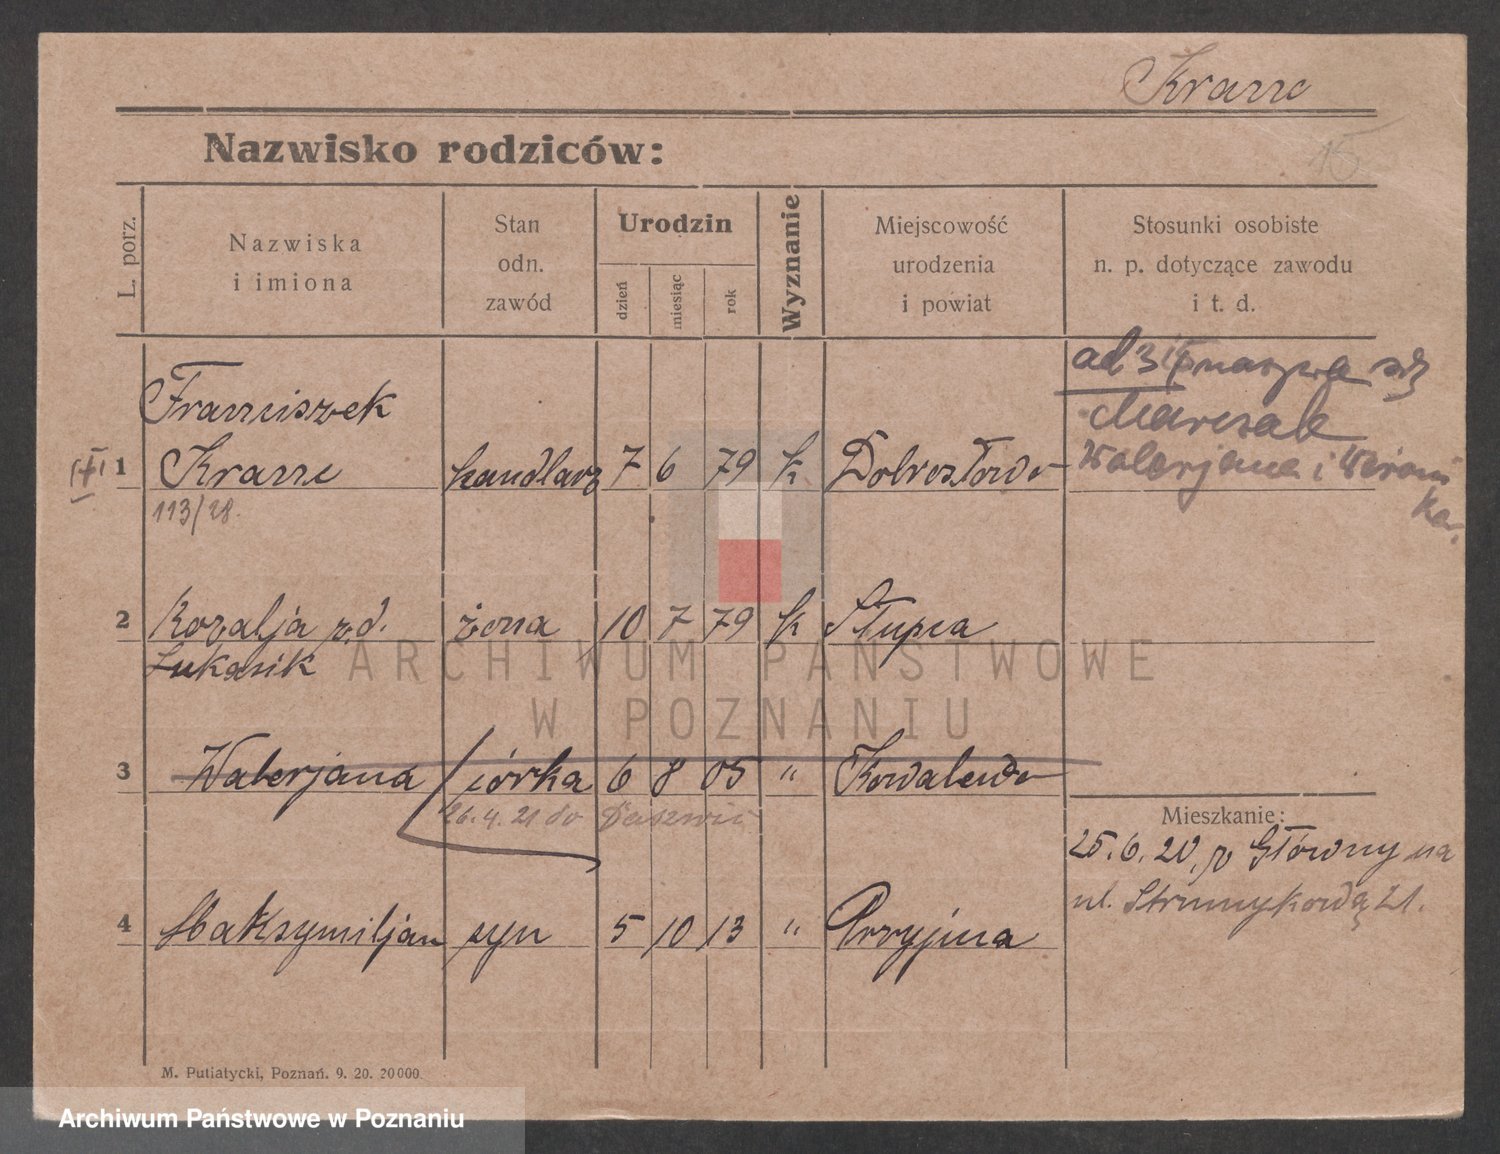 Kranc
15
Nazwisko rodziców:
L. porz.
Nazwiska
i imiona
Stan
odn.
zawód
Urodzin
dzień
miesiąc
rok
Wyznanie
Miejscowość
urodzenia
i powiat
Stosunki osobiste
n. p. dotyczące zawodu
i t. d.
ad 3 nazywa się
Marczak
Walerjana i Weroni
ka.
Franciszek
1 Kranc handlarz 7 6 79 k Dobrosłowo
113/28.
2 Rozalja z d. żona 10 7 79 k Słupca
Łukasik
ARCHIWUM PAŃSTWOWE
W POZNANIU
3 Walerjana córka 6 8 05 " Kowalewo
26.4.21 do
Mieszkanie:
25.6.20. z Główny na
ul. Strumykową 21.
4 Maksymiljan syn 5 10 13 " Przyjma
M. Putiatycki, Poznań. 9. 20. 20000.
Archiwum Państwowe w Poznaniu